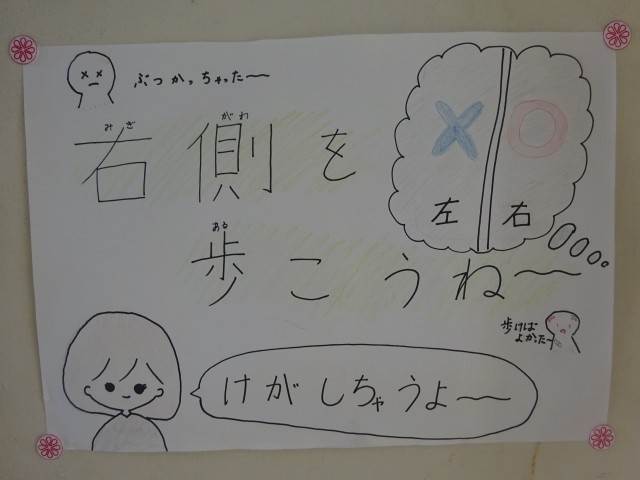 ぶつかっちゃった〜
みぎ がわ
右側を
左 右
ある
歩こうね〜
歩けば
よかった〜
けがしちゃうよ〜